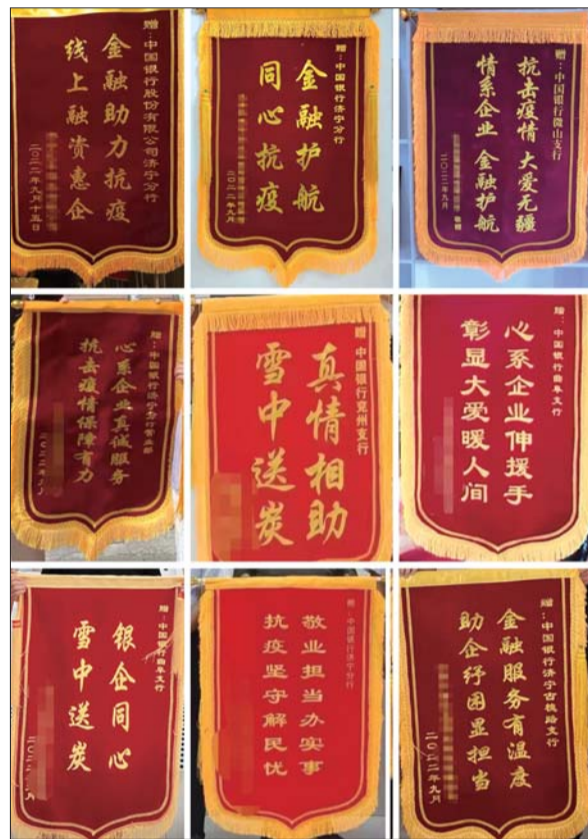 赠：中国银行股份有限公司济宁分行
金融助力抗疫
线上融资惠企
二〇二二年九月十五日
赠：中国银行济宁分行
金融护航
同心抗疫
二〇二二年九月
赠：中国银行微山支行
抗击疫情 大爱无疆
情系企业 金融护航
敬赠
二〇二二年九月
赠：中国银行济宁分行营业部
心系企业真诚服务
抗击疫情保障有力
赠 中国银行兖州支行
真情相助
雪中送炭
赠：中国银行曲阜支行
心系企业伸援手
彰显大爱暖人间
赠：中国银行曲阜支行
银企同心
雪中送炭
赠：中国银行济宁分行
敬业担当办实事
抗疫坚守解民忧
赠：中国银行济宁古槐路支行
金融服务有温度
助企纾困显担当
二〇二二年九月